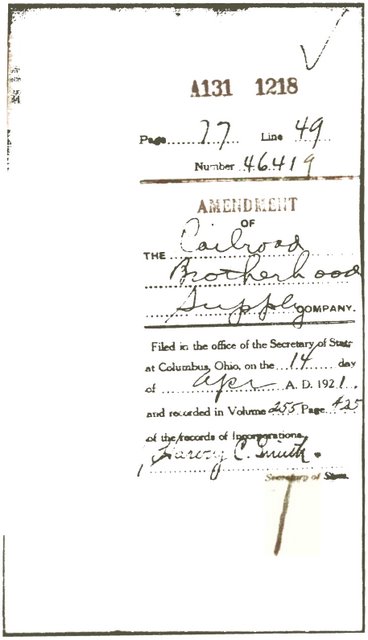 A131 1218
Page 77 Line 49
Number 46419
AMENDMENT
OF
THE Railroad
Brotherhood
Supply COMPANY.
Filed in the office of the Secretary of State
at Columbus, Ohio, on the 14 day
of Apr A. D. 1921.
and recorded in Volume 255 Page 425
of the records of Incorporations.
Harvey C. Smith.
Secretary of State.